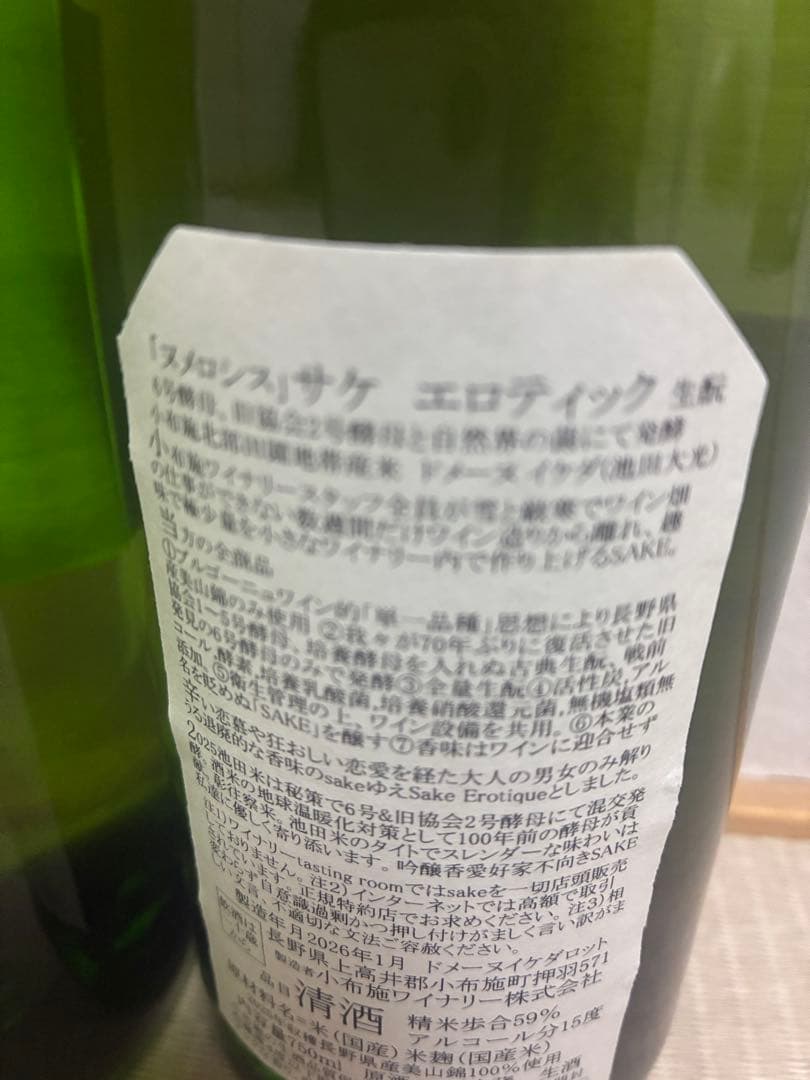 「ヌメロシス」サケ エロティック 生酛
6号酵母、旧協会2号酵母と自然界の菌にて発酵
小布施北部田園地帯産米 ドメーヌ イケダ(池田大光)
小布施ワイナリースタッフ全員が雪と厳寒でワイン畑
の仕事ができない数週間だけワイン造りから離れ、趣
味で極少量を小さなワイナリー内で作り上げるSAKE。
当方の全商品
①ブルゴーニュワイン的「単一品種」思想により長野県
産美山錦のみ使用 ②我々が70年ぶりに復活させた旧
協会1〜5号酵母、培養酵母を入れぬ古典生酛、戦前
発見の6号酵母のみで発酵③全量生酛④活性炭,アル
コール,酵素,培養乳酸菌,培養硝酸還元菌,無機塩類無
添加。⑤衛生管理の上、ワイン設備を共用。⑥本業の
名を貶めぬ「SAKE」を醸す⑦香味はワインに迎合せず
辛い恋慕や狂おしい恋愛を経た大人の男女のみ解り
うる退廃的な香味のsakeゆえSake Erotiqueとしました。
2025池田米は秘策で6号&旧協会2号酵母にて混交発
酵。酒米の地球温暖化対策として100年前の酵母が貢
献。池田米のタイトでスレンダーな味わいは
私達に優しく寄り添います。吟醸香愛好家不向きSAKE
注1)ワイナリーtasting roomではsakeを一切店頭販売
ておりません。注2)インターネットでは高額で取引
正規特約店でお求めください。注3)相
わらず自意識過剰かつ押し付けがましく言い訳がま
しい文言、不適切な文法ご容赦ください。
製造年月2026年1月 ドメーヌイケダロット
長野県上高井郡小布施町押羽571
製造者小布施ワイナリー株式会社
品目 清酒 精米歩合59%
アルコール分15度
原材料名=米(国産)米麹(国産米)
長野県産美山錦100%使用
容量750ml 生酒